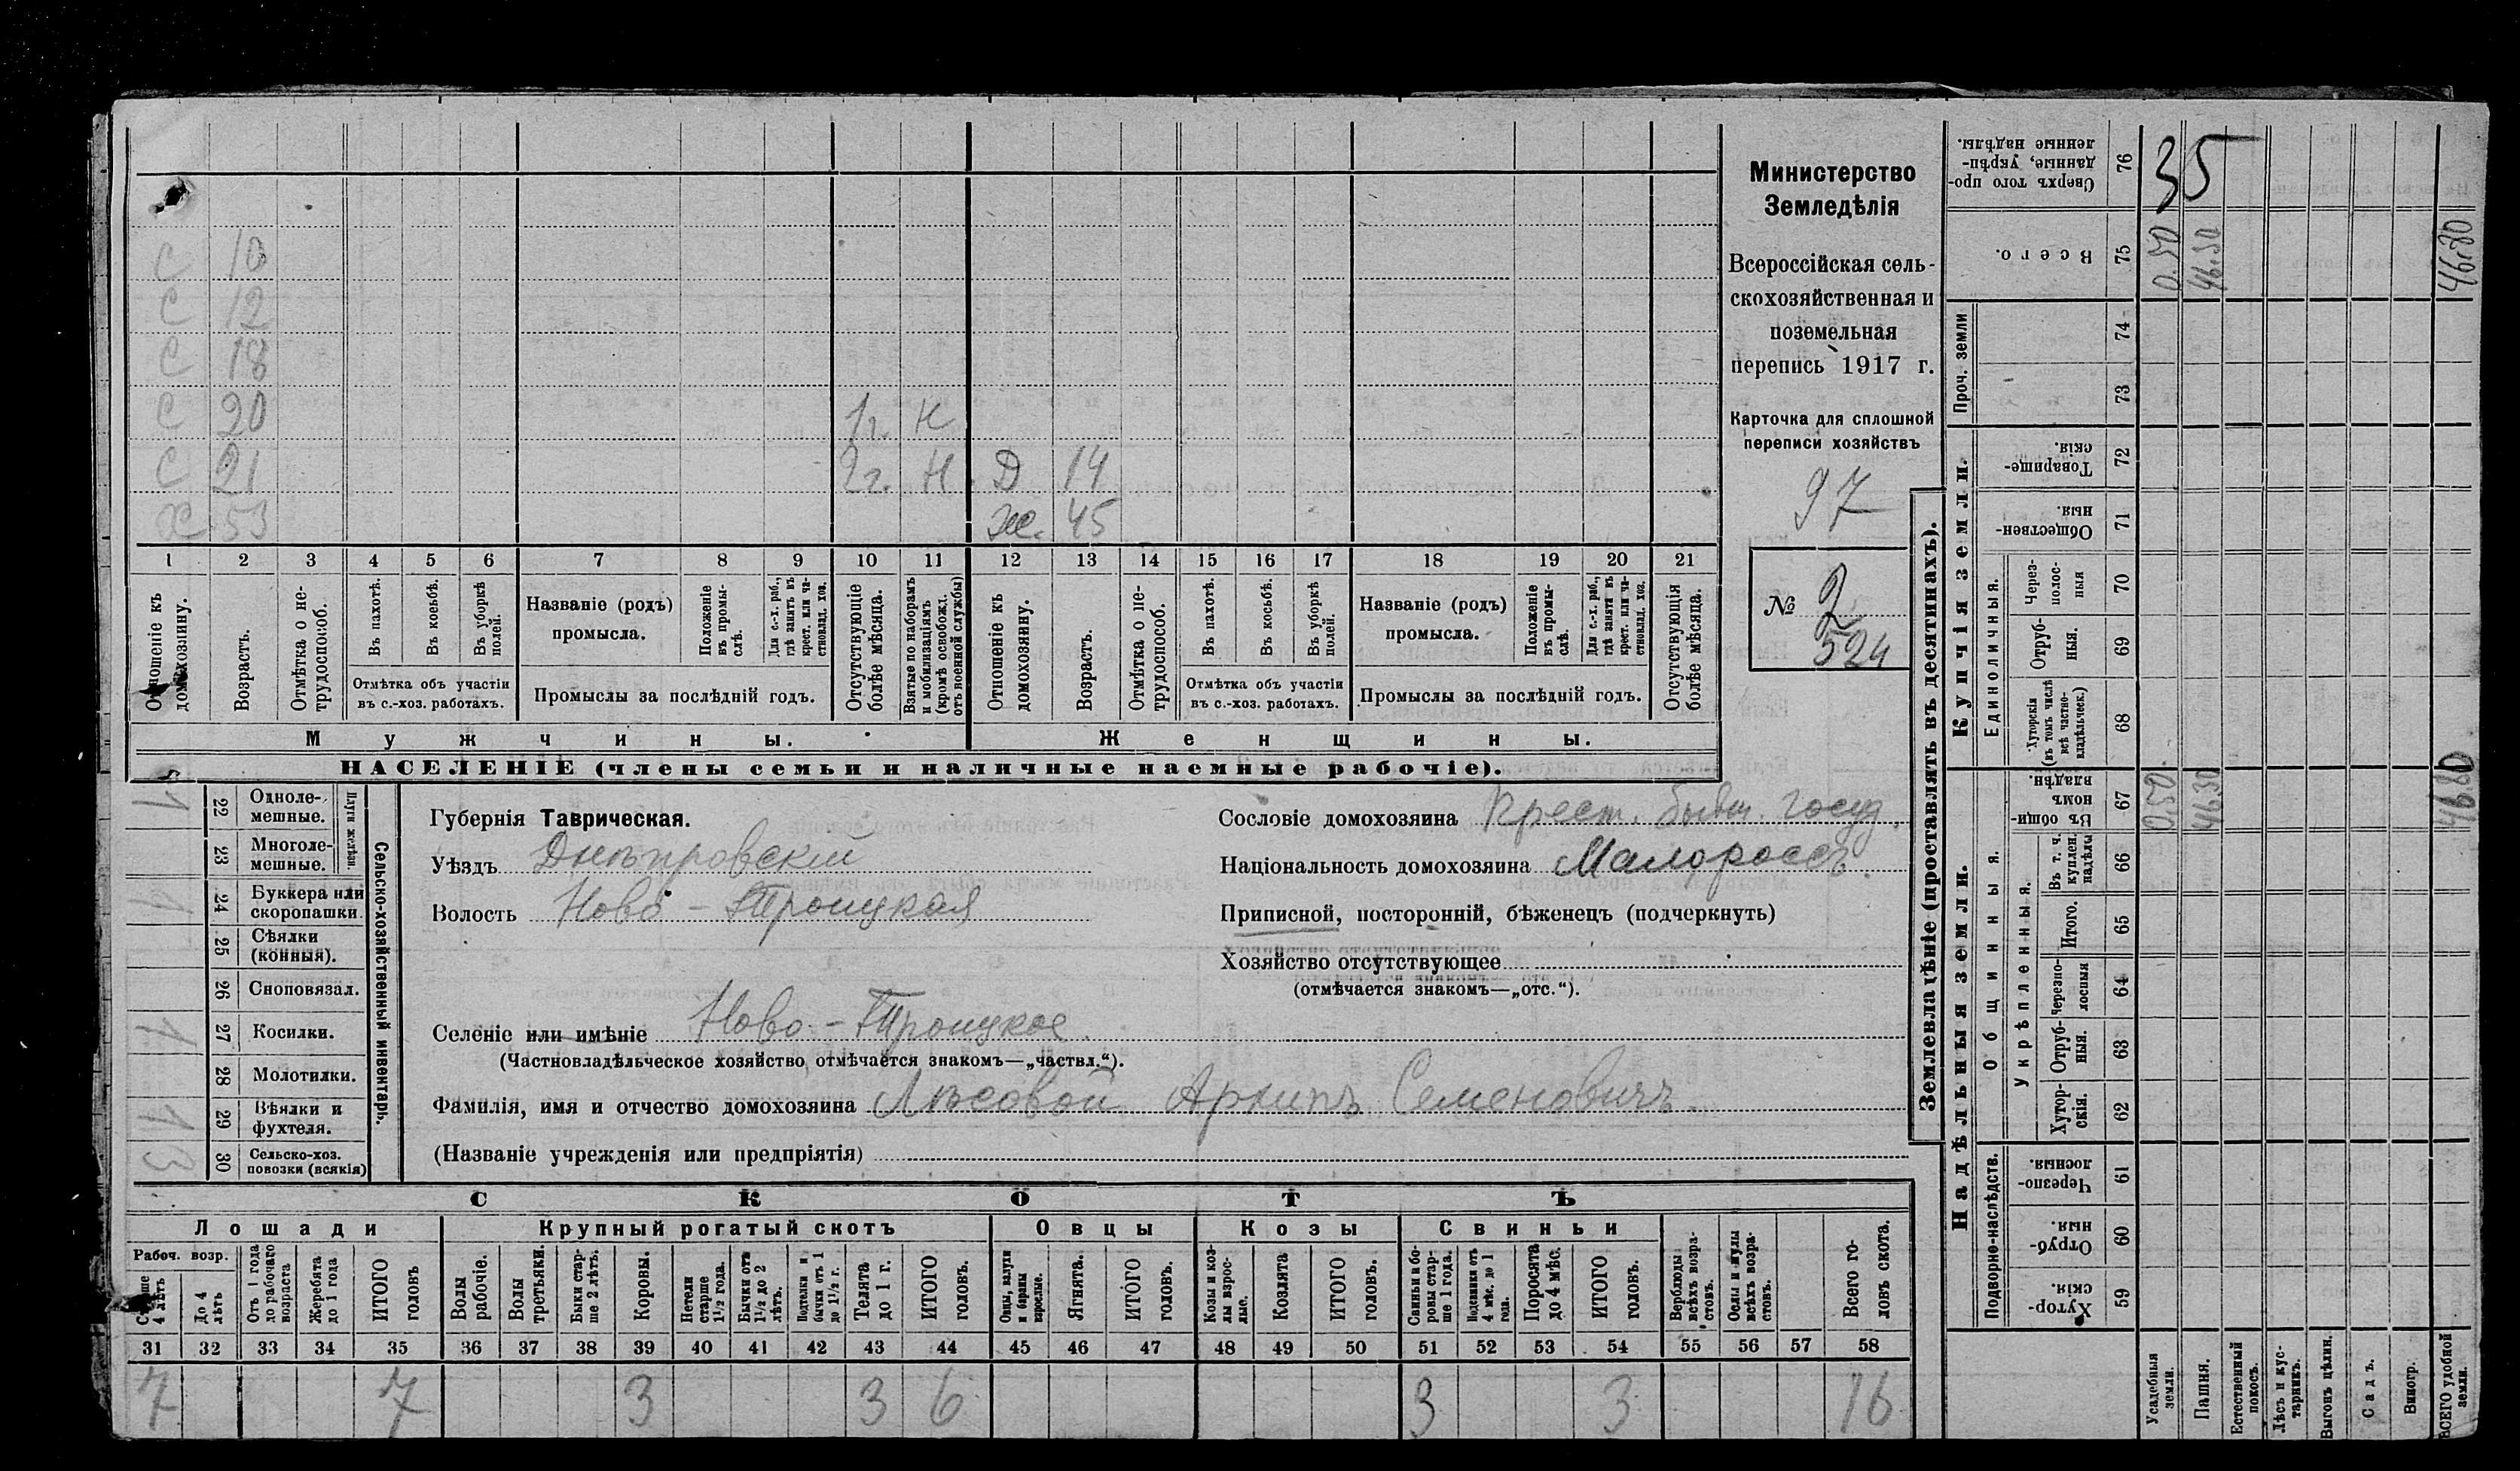 Министерство
Земледѣлія
Всероссійская сель-
скохозяйственная и
поземельная
перепись 1917 г.
Карточка для сплошной
переписи хозяйствъ
97
№ 2
524
С 10
С 12
С 18
С 20 1г. Н
С 21 2г. Н Д 14
Х 53 Ж. 45
1 2 3 4 5 6 7 8 9 10 11 12 13 14 15 16 17 18 19 20 21
Отношеніе къ домохозяину.
Возрастъ.
Отмѣтка о не-трудоспособ.
Въ пахотѣ.
Въ косьбѣ.
Въ уборкѣ полей.
Отмѣтка объ участіи
въ с.-хоз. работахъ.
Названіе (родъ)
промысла.
Положеніе въ промы-слѣ.
Для с.-х. раб., гдѣ занятъ въ крест. или ча-стновлад. хоз.
Промыслы за послѣдній годъ.
Отсутствующіе болѣе мѣсяца.
Взятые по наборамъ и мобилизаціямъ (кромѣ освобожд. отъ военной службы)
Отношеніе къ домохозяину.
Возрастъ.
Отмѣтка о не-трудоспособ.
Въ пахотѣ.
Въ косьбѣ.
Въ уборкѣ полей.
Отмѣтка объ участіи
въ с.-хоз. работахъ.
Названіе (родъ)
промысла.
Положеніе въ промы-слѣ.
Для с.-х. раб., гдѣ заняты въ крест. или ча-стновлад. хоз.
Промыслы за послѣдній годъ.
Отсутствующія болѣе мѣсяца.
Мужчины. Женщины.
НАСЕЛЕНІЕ (члены семьи и наличные наемные рабочіе).
Сельско-хозяйственный инвентарь.
22 Одноле-мешные. 1
23 Многоле-мешные.
24 Буккера или скоропашки. 1
25 Сѣялки (конныя).
26 Сноповязал.
27 Косилки. 1
28 Молотилки.
29 Вѣялки и фухтеля. 1
30 Сельско-хоз. повозки (всякія) 3
Губернія Таврическая.
Уѣздъ Днѣпровскій
Волость Ново-Троицкая
Селеніе или имѣніе Ново-Троицкое
(Частновладѣльческое хозяйство отмѣчается знакомъ—„частвл.“).
Фамилія, имя и отчество домохозяина Лѣсовой Архипъ Семеновичъ.
(Названіе учрежденія или предпріятія)
Сословіе домохозяина Крест. бывш. госуд.
Національность домохозяина Малороссъ.
Приписной, посторонній, бѣженецъ (подчеркнуть)
Хозяйство отсутствующее
(отмѣчается знакомъ—„отс.“).
СКОТЪ
Лошади Крупный рогатый скотъ Овцы Козы Свиньи
Рабоч. возр.
Старше 4 лѣтъ
До 4 лѣтъ
Отъ 1 года до рабочаго возраста
Жеребята до 1 года
ИТОГО головъ
Волы рабочіе.
Волы третьяки.
Быки стар-ше 2 лѣтъ.
Коровы.
Нетели старше 1½ года.
Бычки отъ 1½ до 2 лѣтъ.
Подтелки и бычки отъ 1 до 1½ г.
Телята до 1 г.
ИТОГО головъ.
Овцы, валухи и бараны взрослые.
Ягнята.
ИТОГО головъ.
Козы и коз-лы взрос-лые.
Козлята
ИТОГО головъ.
Свиньи и бо-ровы стар-ше 1 года.
Подсвинки отъ 4 мѣс. до 1 года.
Поросята до 4 мѣс.
ИТОГО головъ.
Верблюды всѣхъ возра-стовъ.
Ослы и мулы всѣхъ возра-стовъ.
Всего го-ловъ скота.
31 32 33 34 35 36 37 38 39 40 41 42 43 44 45 46 47 48 49 50 51 52 53 54 55 56 57 58
7 7 3 3 6 3 3 16
Землевладѣніе (проставлять въ десятинахъ).
Надѣльныя земли. Купчія земли.
Подворно-наслѣдств.
Общинныя.
Укрѣпленныя.
Единоличныя.
Проч. земли
Сверхъ того про-данные, укрѣп-ленные надѣлы. 76 35
Всего. 75 0.50 46.30 46.80
74
73
Товарище-скія. 72
Обществен-ныя. 71
Через-полос-ныя 70
Отруб-ныя. 69
Хуторскія (въ томъ числѣ всѣ частно-владѣльческ.) 68
Въ общин-номъ владѣн. 67 0.50 46.30 46.80
Въ т. ч. куплен. надѣлы 66
Итого. 65
Черезпо-лосныя 64
Отруб-ныя. 63
Хутор-скія. 62
Черезпо-лосныя. 61
Отруб-ныя. 60
Хутор-скія. 59
Усадебныя земли.
Пашня.
Естественный покосъ.
Лѣсъ и кус-тарникъ.
Выгонъ цѣлин.
Садъ.
Виногр.
ВСЕГО удобной земли.